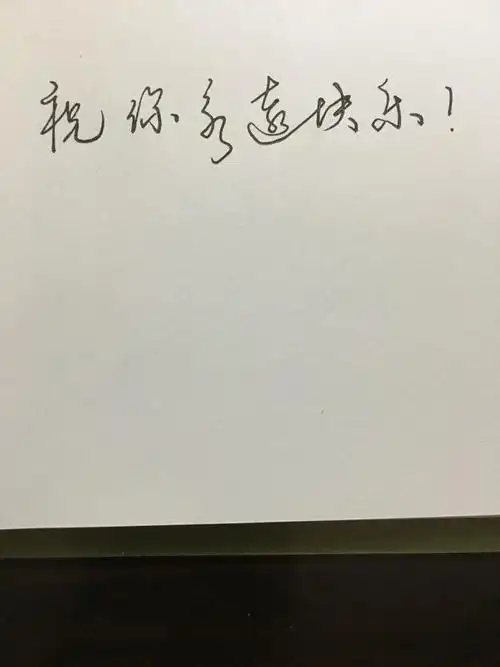 祝你永远快乐！